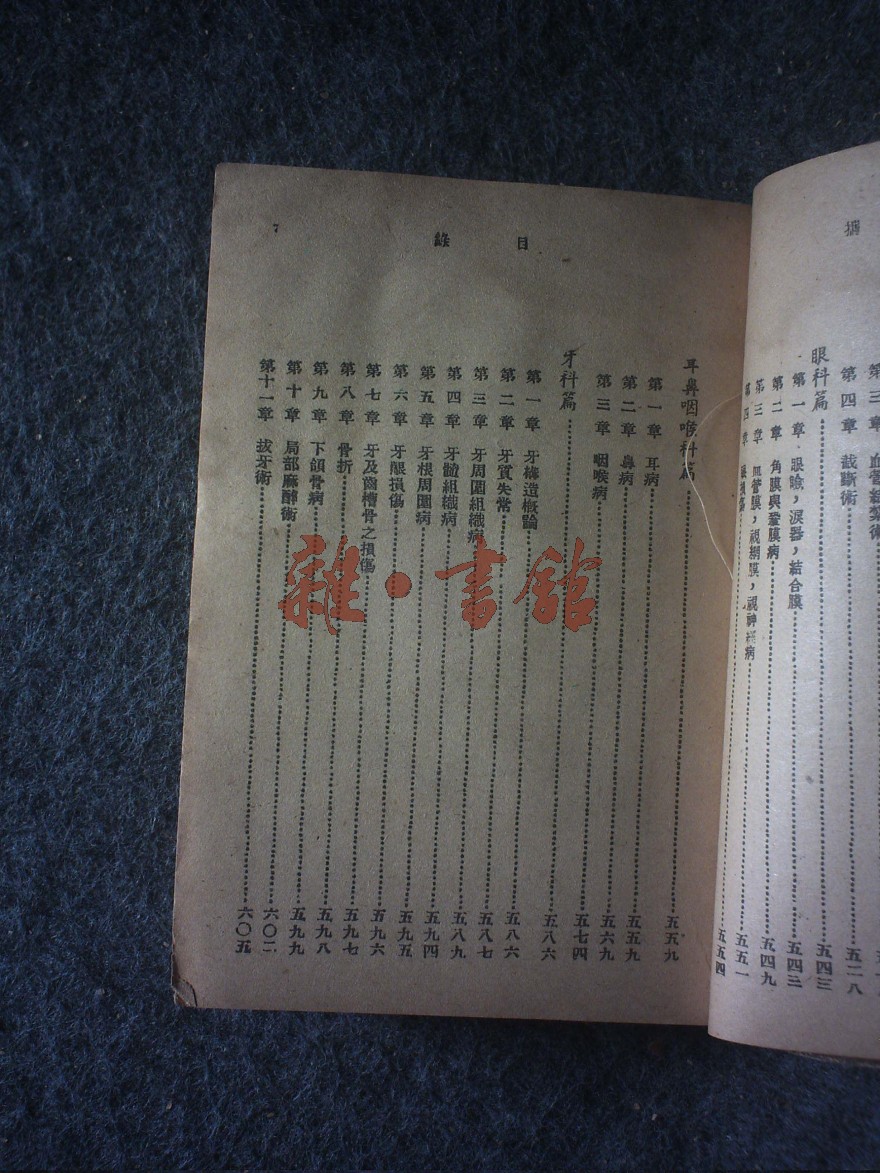 第三章 血管結紮術
第四章 截斷術……五二八
眼科篇……五四三
第一章 眼瞼，淚器，結合膜……五四三
第二章 角膜與鞏膜病……五四九
第三章 管膜，視網膜，視神經病……五五一
第四章 眼損傷……五五四
目錄 7
耳鼻咽喉科篇……五五九
第一章 耳病……五五九
第二章 鼻病……五六九
第三章 咽喉病……五七四
牙科篇……五八六
第一章 牙構造概論……五八六
第二章 牙質失常……五八七
第三章 牙周圍組織病……五八九
第四章 牙髓組織病……五九四
第五章 牙根周圍病……五九五
第六章 牙齦損傷……五九六
第七章 牙及齒槽骨之損傷……五九七
第八章 骨折……五九八
第九章 下頜骨病……五九九
第十章 局部麻醉術……六〇二
第十一章 拔牙術……六〇五
雜·書館